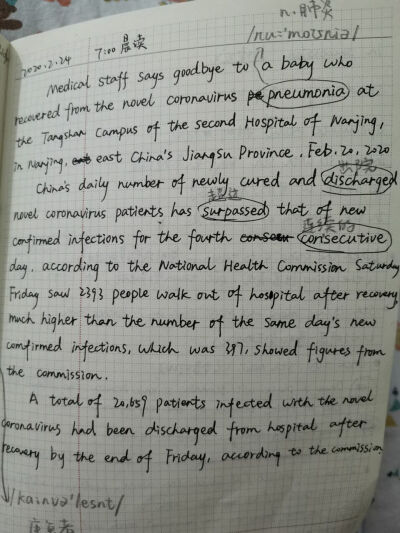 n.肺炎
2020.2.24 7:00 晨读 /nu:'məʊnia/
Medical staff says goodbye to a baby who
recovered from the novel coronavirus pneumonia at
the Tangshan Campus of the second Hospital of Nanjing,
in Nanjing, east China's Jiangsu Province. Feb. 20, 2020
出院
China's daily number of newly cured and discharged
超过
novel coronavirus patients has surpassed that of new
连续的
confirmed infections for the fourth consecutive
day, according to the National Health Commission Saturday
Friday saw 2393 people walk out of hospital after recovery,
much higher than the number of the same day's new
comfirmed infections, which was 397, showed figures from
the commission.
A total of 20,659 patients infected with the novel
coronavirus had been discharged from hospital after
recovery by the end of Friday, according to the commission
/kɒnvə'lesnt/
康复者